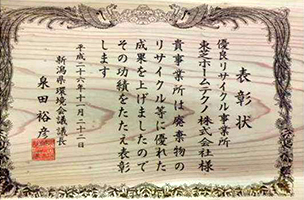 表彰状
優良リサイクル事業所
東芝ホームテクノ株式会社様
貴事業所は廃棄物の
リサイクル等に優れた
成果を上げましたので
その功績をたたえ表彰
します
平成二十六年十一月二十二日
新潟県環境会議議長
泉田裕彦